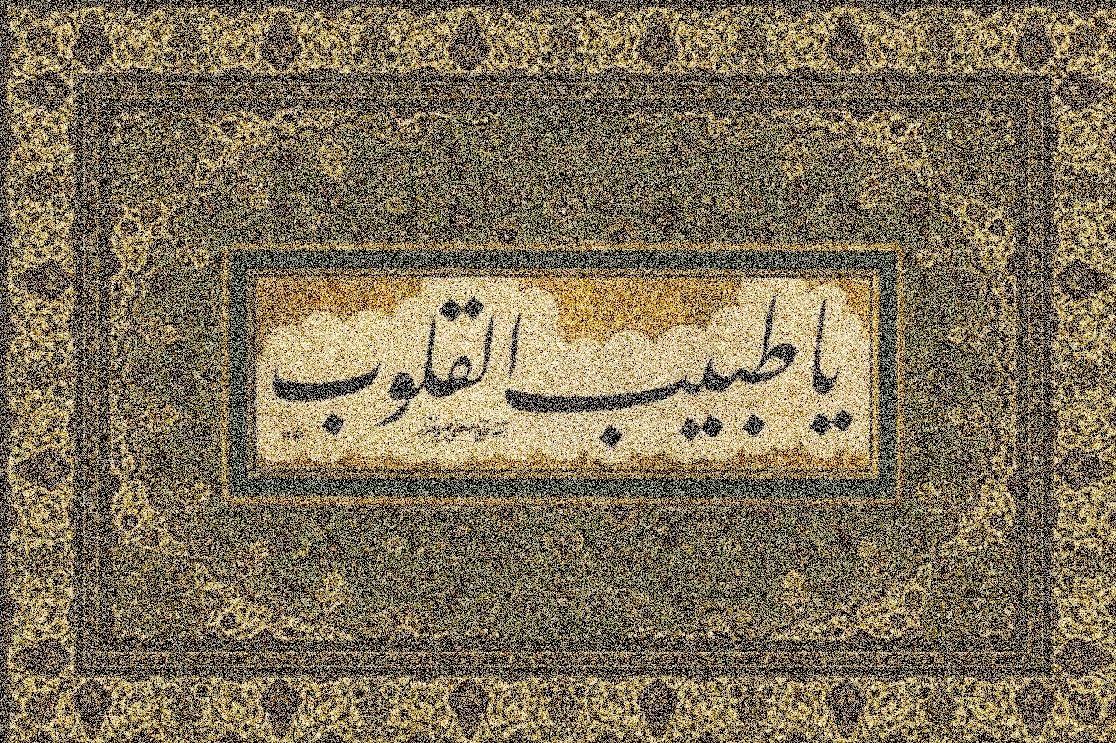 یا طبیب القلوب